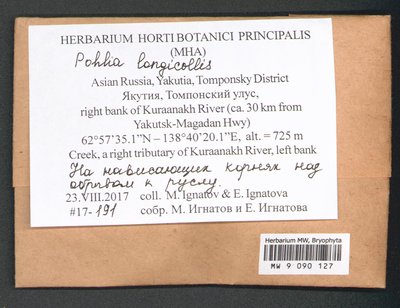 HERBARIUM HORTI BOTANICI PRINCIPALIS
(MHA)
Pohlia longicollis
Asian Russia, Yakutia, Tomponsky District
Якутия, Томпонский улус,
right bank of Kuraanakh River (ca. 30 km from
Yakutsk-Magadan Hwy)
62°57'35.1"N – 138°40'20.1"E, alt. = 725 m
Creek, a right tributary of Kuraanakh River, left bank
На нависающих корнях над
обрывом к руслу.
23.VIII.2017 coll. M. Ignatov & E. Ignatova
#17- 191 собр. М. Игнатов и Е. Игнатова
Herbarium MW, Bryophyta
MW 9 090 127